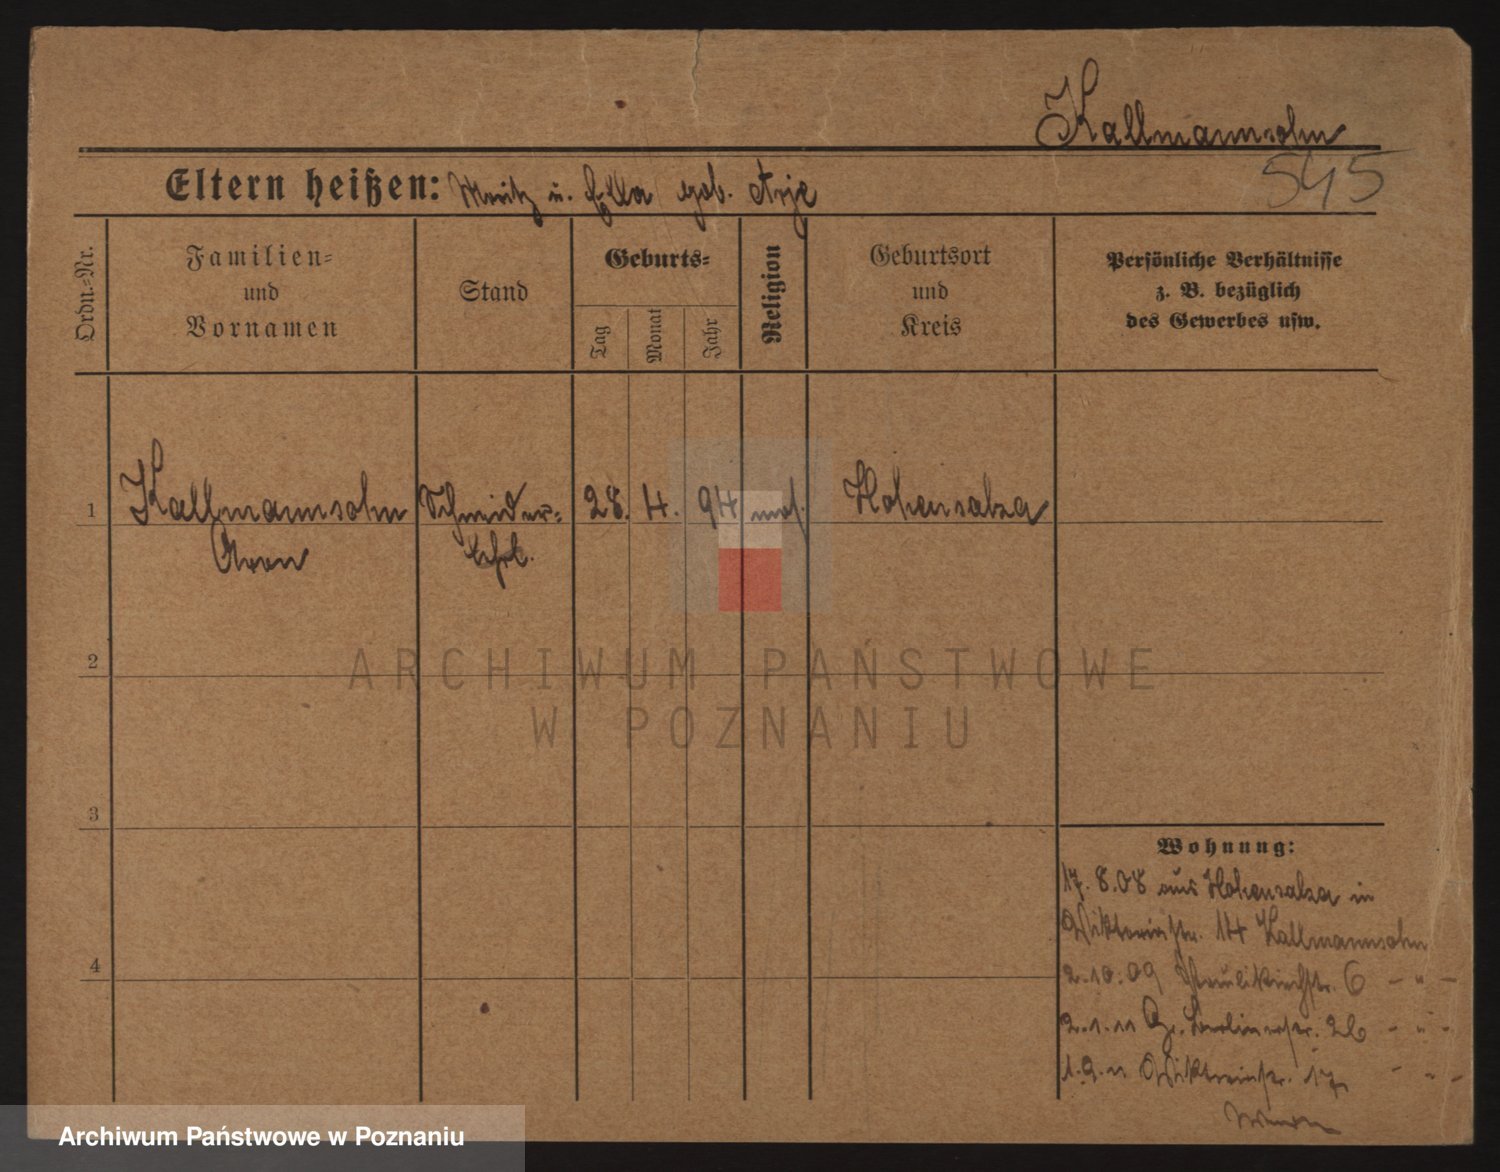 Kallmannsohn
545
Eltern heißen: Moritz u. Ella geb. Arje
Ordn.-Nr.
Familien-
und
Vornamen
Stand
Geburts-
Tag
Monat
Jahr
Religion
Geburtsort
und
Kreis
Persönliche Verhältnisse
z. B. bezüglich
des Gewerbes usw.
1 Kallmannsohn Schneider- 28. 4. 94 mos. Hohensalza
Aron lehrl.
2
ARCHIWUM PAŃSTWOWE
W POZNANIU
3
Wohnung:
17. 8. 08 aus Hohensalza in
Viktoriastr. 14 Kallmannsohn
4
2. 10. 09 Paulikirchstr. 6 - " -
2. 1. 11 Gr. Berlinerstr. 26 - " -
1. 9. 11 Viktoriastr. 17 - " -
Archiwum Państwowe w Poznaniu